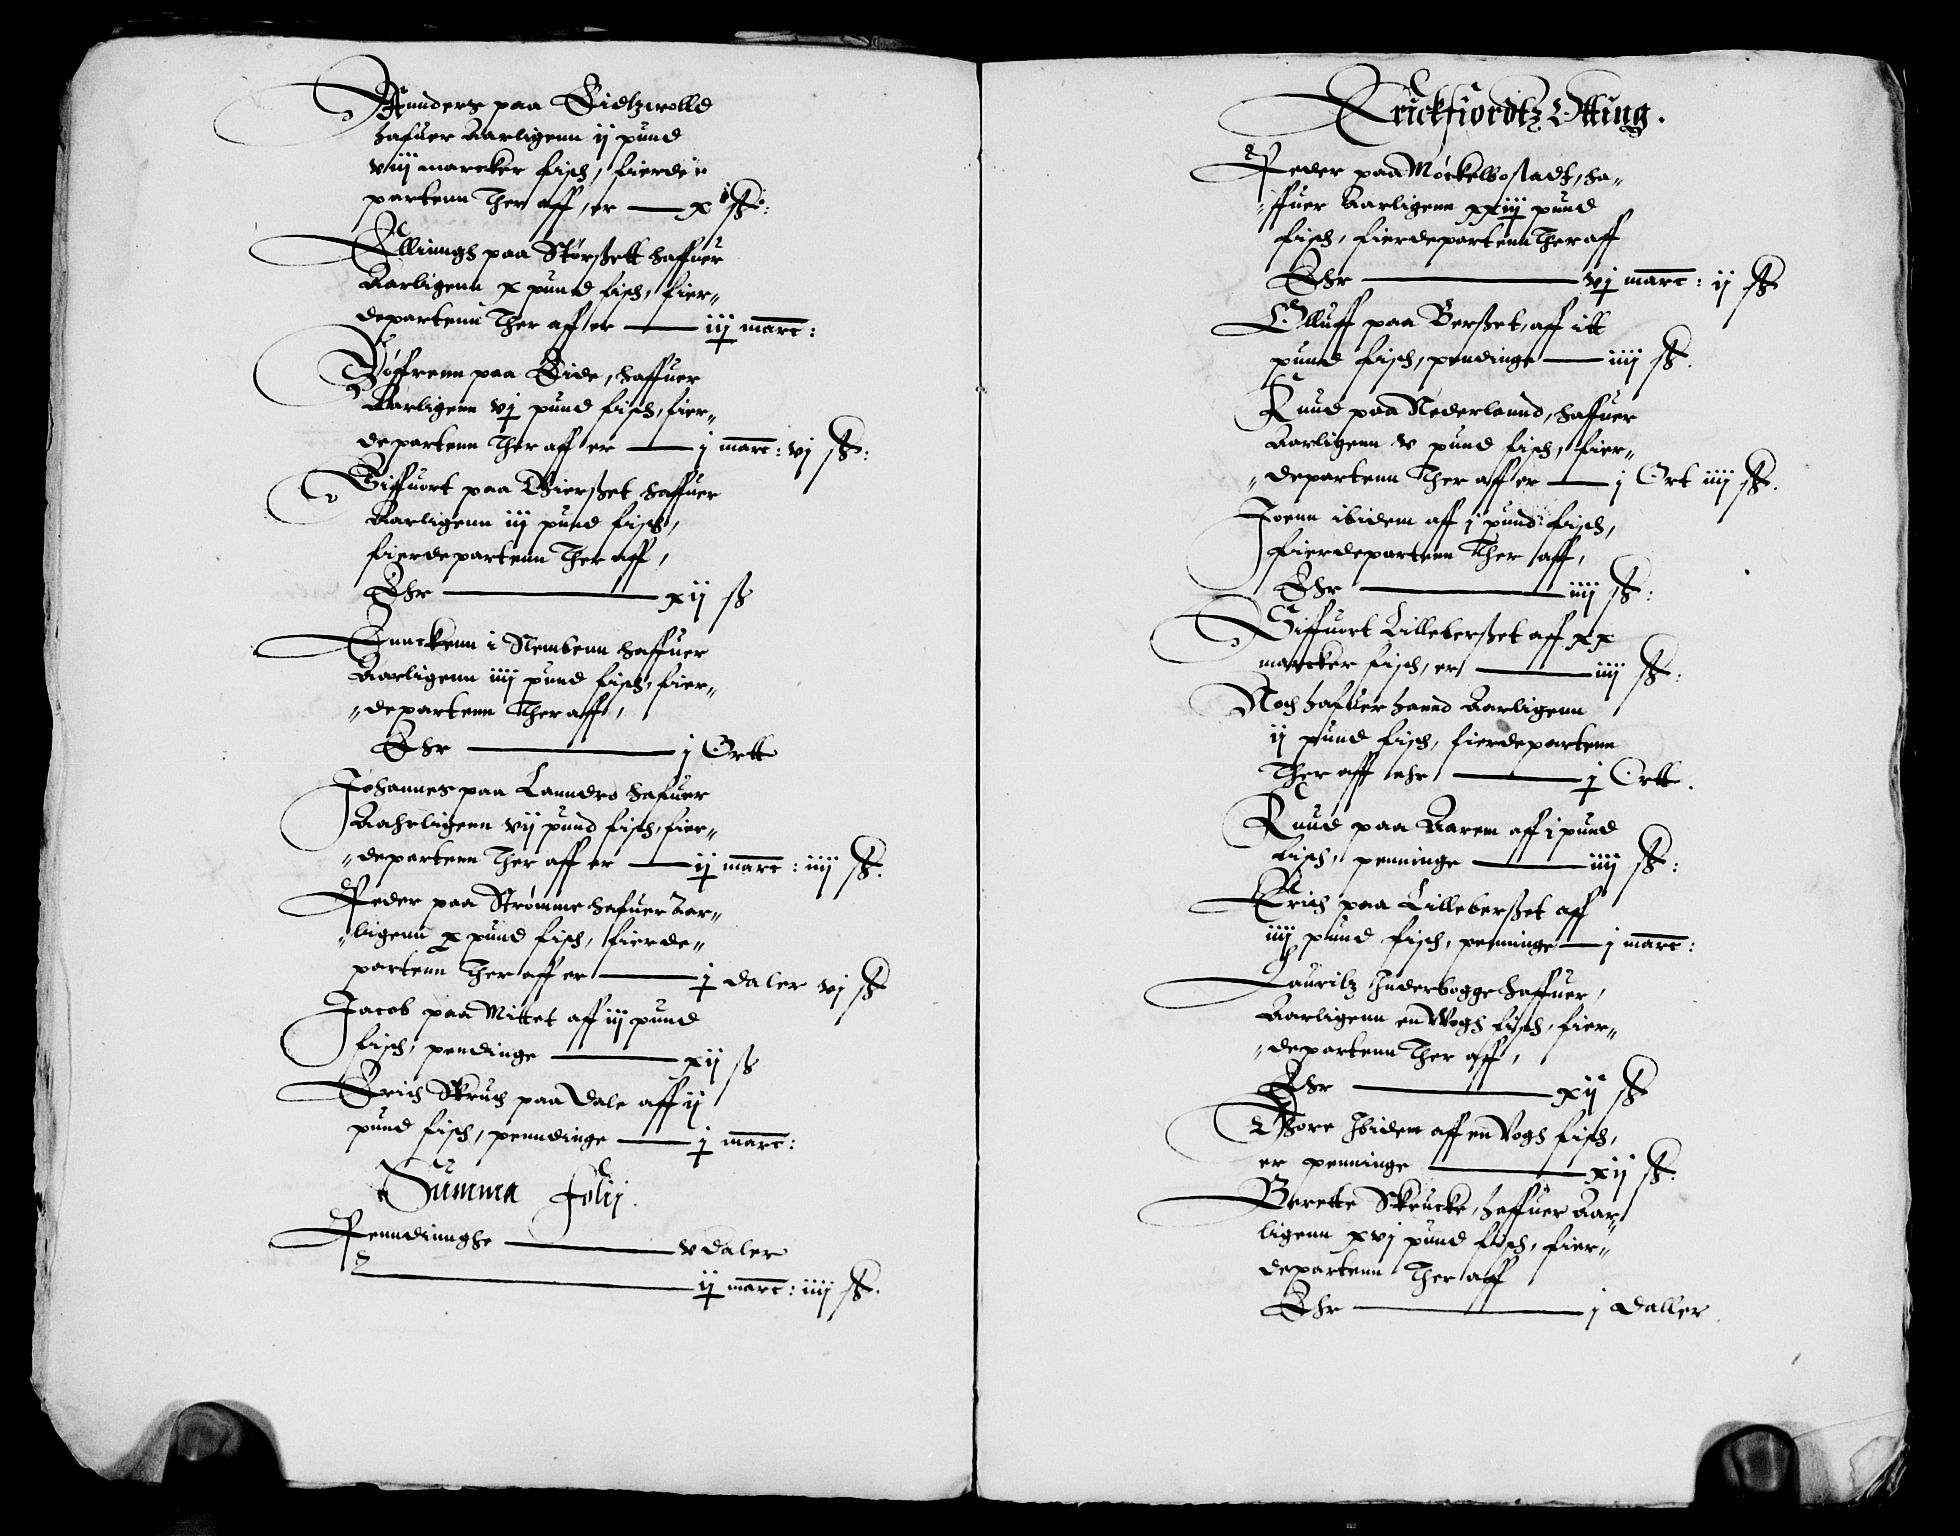 Annders paa Eidtzwolld
hafuer Aarligenn ij pund
viij marcker fisch, fierde
partenn Ther aff, er —— x ß:
Ellinngh paa Störßett haffuer
Aarligenn x pund fisch, fier„
departenn Ther aff er —— iij marc:
Töffrenn paa Eide, haffuer
Aarligenn vj pund fisch, fier„
departenn Ther aff er —— j marc: vj ß:
Siffuort paa Gierßet haffuer
Aarligenn iij pund fisch,
fierdepartenn Ther aff,
Ehr —— xij ß
Gunckenn i Nembenn haffuer
Aarligenn iiij pund fisch, fier„
„departenn Ther aff,
Ehr —— j Ortt
Johannes paa Lanndro hafuer
Aahrligenn vij pund fisch, fier„
„departenn Ther aff er —— ij marc: iiij ß.
Peder paa Strömme hafuer Aar„
„ligenn x pund fisch, fierde„
partenn Ther aff er —— j daler vj ß
Jacob paa Mittet aff iij pund
fisch, pendinge —— xij ß
Erich Skruch paa Dale aff ij
pund fisch, penndinge —— j marc:
Summa folij.
Penndinnghe —— v daler
—— ij marc: iiij ß.
Erickfiordtz Otting.
Peder paa Möckelbostadt, ha„
„ffuer Aarligenn xxiij pund
fisch, fierdepartenn Ther aff
Ehr —— vj marc: ij ß
Olluff paa Berßet, aff itt
pund fisch, pendinge —— iiij ß.
Knud paa Nederlannd, haffuer
Aarligenn v pund fisch, fier„
„departenn Ther aff er —— j Ort iiij ß.
Joenn ibidem aff j pund fisch,
fierdepartenn Ther aff,
Ehr —— iiij ß:
Siffuort Lilleberßet aff xx
marcker fisch, er —— iiij ß:
Noch hafuer hannd Aarligenn
ij pund fisch, fierdepartenn
Ther aff ehr —— j Ortt.
Knud paa Aarem aff j pund
fisch, penninge —— iiij ß:
Erich paa Lilleberßet aff
iiij pund fisch, penninge —— j marc:
Lauritz Inderbogge haffuer,
Aarligenn en Wogh fisch, fier„
„departenn Ther aff,
Ehr —— xij ß
Thore Ibidem aff en Vogh fisch,
er penninge —— xij ß:
Berette Skrucke, haffuer Aar„
ligenn xvj pund fisch, fier„
departenn Ther aff
Ehr —— j daller